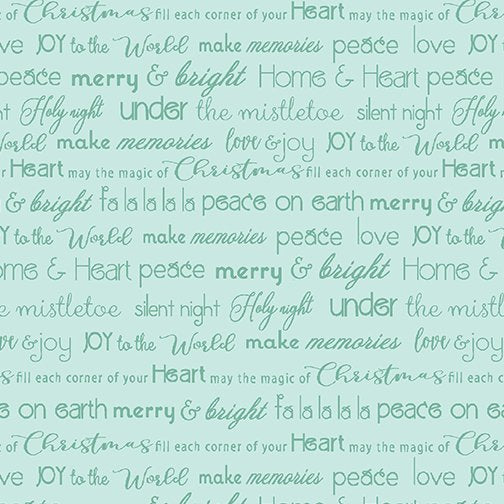 of Christmas fill each corner of your Heart may the magic of Ch
ve JOY to the World make memories peace love JOY
peace merry & bright Home & Heart peace
ht Holy night under the mistletoe silent night Holy
World make memories love &joy JOY to the World m
r Heart may the magic of Christmas fill each corner of your Heart m
& bright fa la la la la peace on earth merry & brig
Y to the World make memories peace love JOY to the W
ome & Heart peace merry & bright Home &
e mistletoe silent night Holy night under the mistl
ve &joy JOY to the World make memories love &joy
s fill each corner of your Heart may the magic of Christmas fill each c
e on earth merry & bright fa la la la la peace on ea
of Christmas fill each corner of your Heart may the magic of Ch
ve JOY to the World make memories peace love JOY
peace merry & bright Home & Heart peace